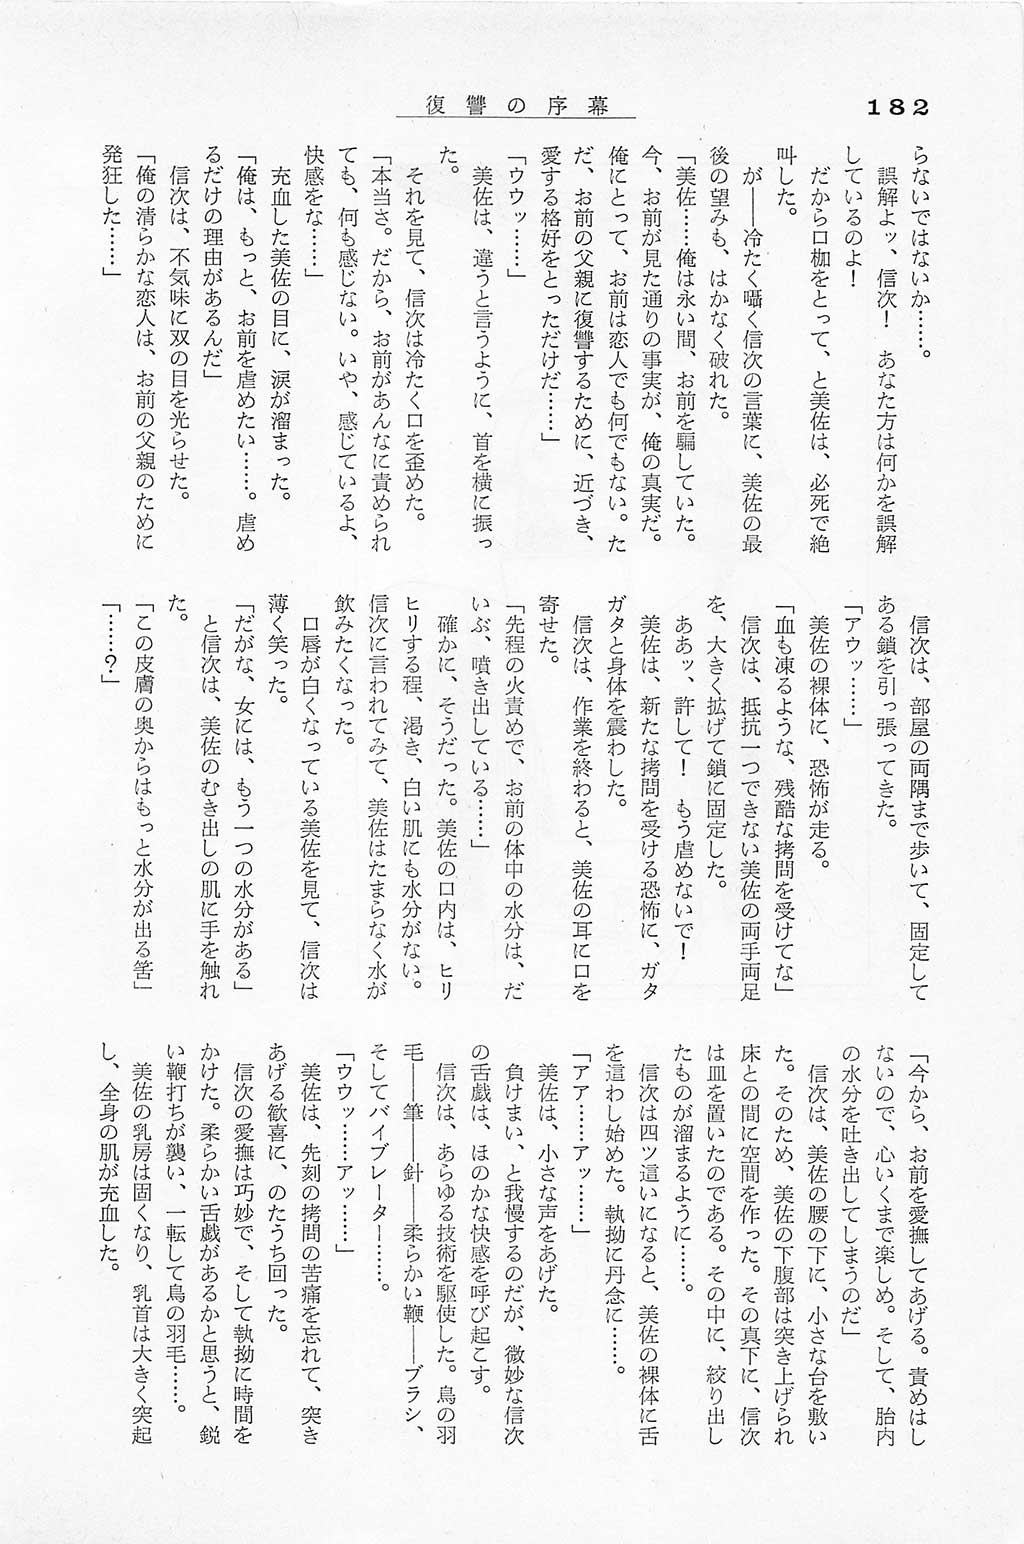 182
復讐の序幕
らないではないか……。
誤解よッ、信次！　あなた方は何かを誤解
しているのよ！
だから口枷をとって、と美佐は、必死で絶
叫した。
が――冷たく囁く信次の言葉に、美佐の最
後の望みも、はかなく破れた。
「美佐……俺は永い間、お前を騙していた。
今、お前が見た通りの事実が、俺の真実だ。
俺にとって、お前は恋人でも何でもない。た
だ、お前の父親に復讐するために、近づき、
愛する格好をとっただけだ……」
「ウウッ……」
美佐は、違うと言うように、首を横に振っ
た。
それを見て、信次は冷たく口を歪めた。
「本当さ。だから、お前があんなに責められ
ても、何も感じない。いや、感じているよ、
快感をな……」
充血した美佐の目に、涙が溜まった。
「俺は、もっと、お前を虐めたい……。虐め
るだけの理由があるんだ」
信次は、不気味に双の目を光らせた。
「俺の清らかな恋人は、お前の父親のために
発狂した……」
信次は、部屋の両隅まで歩いて、固定して
ある鎖を引っ張ってきた。
「アウッ……」
美佐の裸体に、恐怖が走る。
「血も凍るような、残酷な拷問を受けてな」
信次は、抵抗一つできない美佐の両手両足
を、大きく拡げて鎖に固定した。
ああッ、許して！　もう虐めないで！
美佐は、新たな拷問を受ける恐怖に、ガタ
ガタと身体を震わした。
信次は、作業を終わると、美佐の耳に口を
寄せた。
「先程の火責めで、お前の体中の水分は、だ
いぶ、噴き出している……」
確かに、そうだった。美佐の口内は、ヒリ
ヒリする程、渇き、白い肌にも水分がない。
信次に言われてみて、美佐はたまらなく水が
飲みたくなった。
口唇が白くなっている美佐を見て、信次は
薄く笑った。
「だがな、女には、もう一つの水分がある」
と信次は、美佐のむき出しの肌に手を触れ
た。
「この皮膚の奥からはもっと水分が出る筈」
「……？」
「今から、お前を愛撫してあげる。責めはし
ないので、心いくまで楽しめ。そして、胎内
の水分を吐き出してしまうのだ」
信次は、美佐の腰の下に、小さな台を敷い
た。そのため、美佐の下腹部は突き上げられ
床との間に空間を作った。その真下に、信次
は皿を置いたのである。その中に、絞り出し
たものが溜まるように……。
信次は四ツ這いになると、美佐の裸体に舌
を這わし始めた。執拗に丹念に……。
「アア……アッ……」
美佐は、小さな声をあげた。
負けまい、と我慢するのだが、微妙な信次
の舌戯は、ほのかな快感を呼び起こす。
信次は、あらゆる技術を駆使した。鳥の羽
毛――筆――針――柔らかい鞭――ブラシ、
そしてバイブレーター……。
「ウウッ……アッ……」
美佐は、先刻の拷問の苦痛を忘れて、突き
あげる歓喜に、のたうち回った。
信次の愛撫は巧妙で、そして執拗に時間を
かけた。柔らかい舌戯があるかと思うと、鋭
い鞭打ちが襲い、一転して鳥の羽毛……。
美佐の乳房は固くなり、乳首は大きく突起
し、全身の肌が充血した。